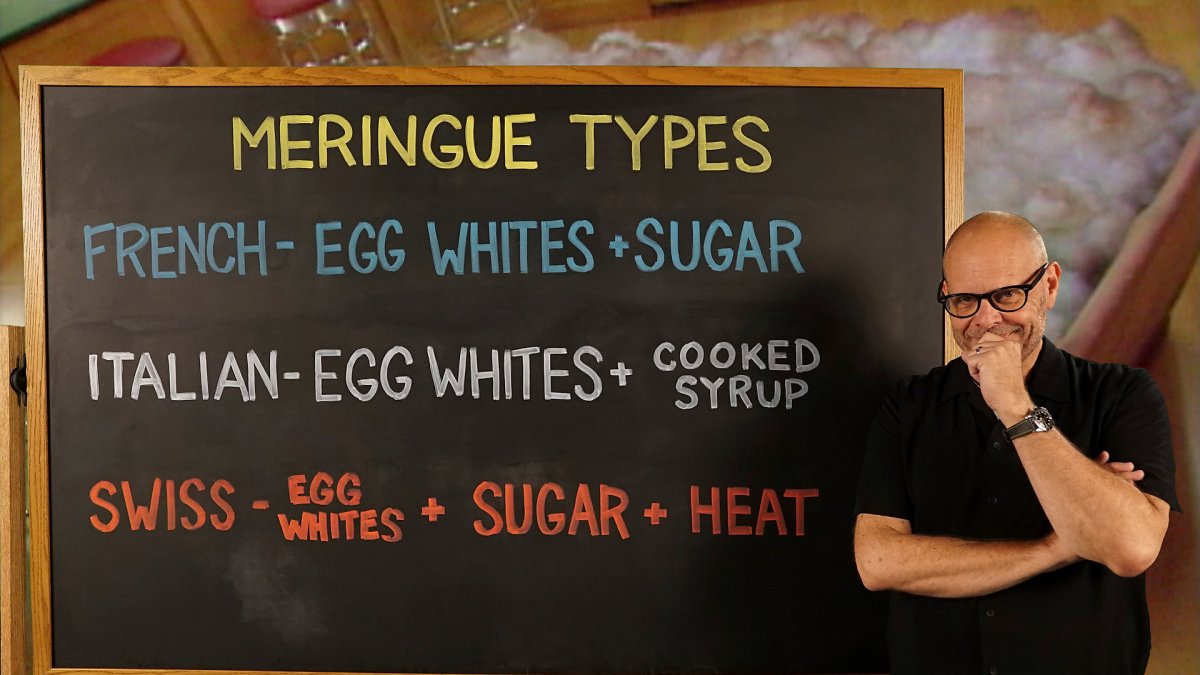 MERINGUE TYPES
FRENCH - EGG WHITES + SUGAR
ITALIAN - EGG WHITES + COOKED SYRUP
SWISS - EGG WHITES + SUGAR + HEAT